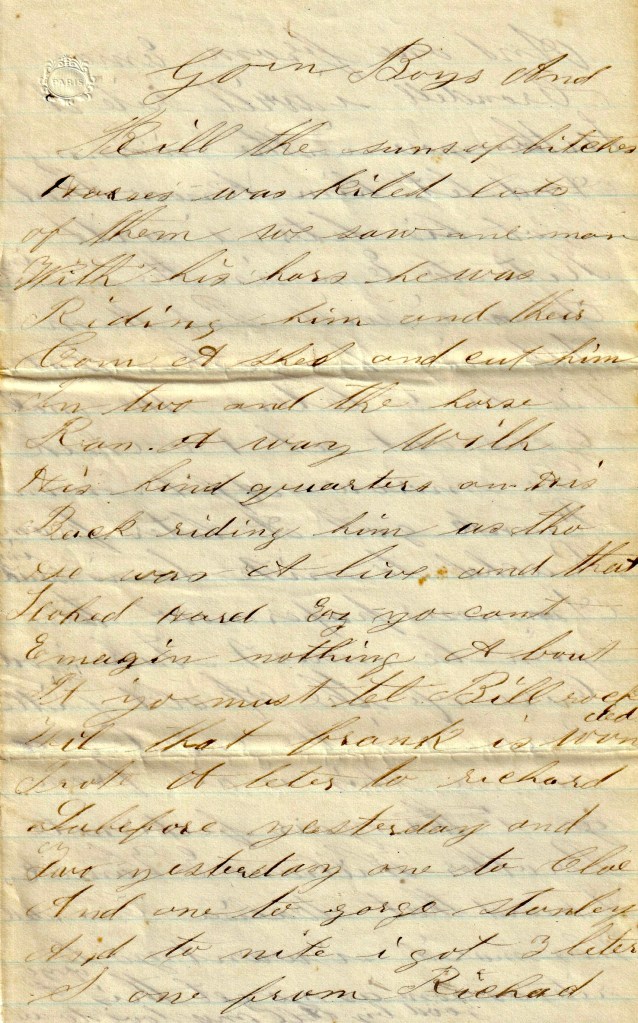 PARIS
Goin Boys And
Kill the sunsof bitches
Horses was kiled lots
of them we saw one man
With his hors he was
Riding him and their
Com A shel and cut him
In two and the horse
Ran A way With
His hind quarters on His
Back riding him as tho
He was A live and that
looked Hard Ey yo cant
Emagin nothing A bout
It yo must tel Bill rock
wil that frank is woun
ded
I rote A leter to richard
before yesterday and
two yesterday one to Cloe
And one to gorge stanley
And to nite i got 3 leter
S one from Richad